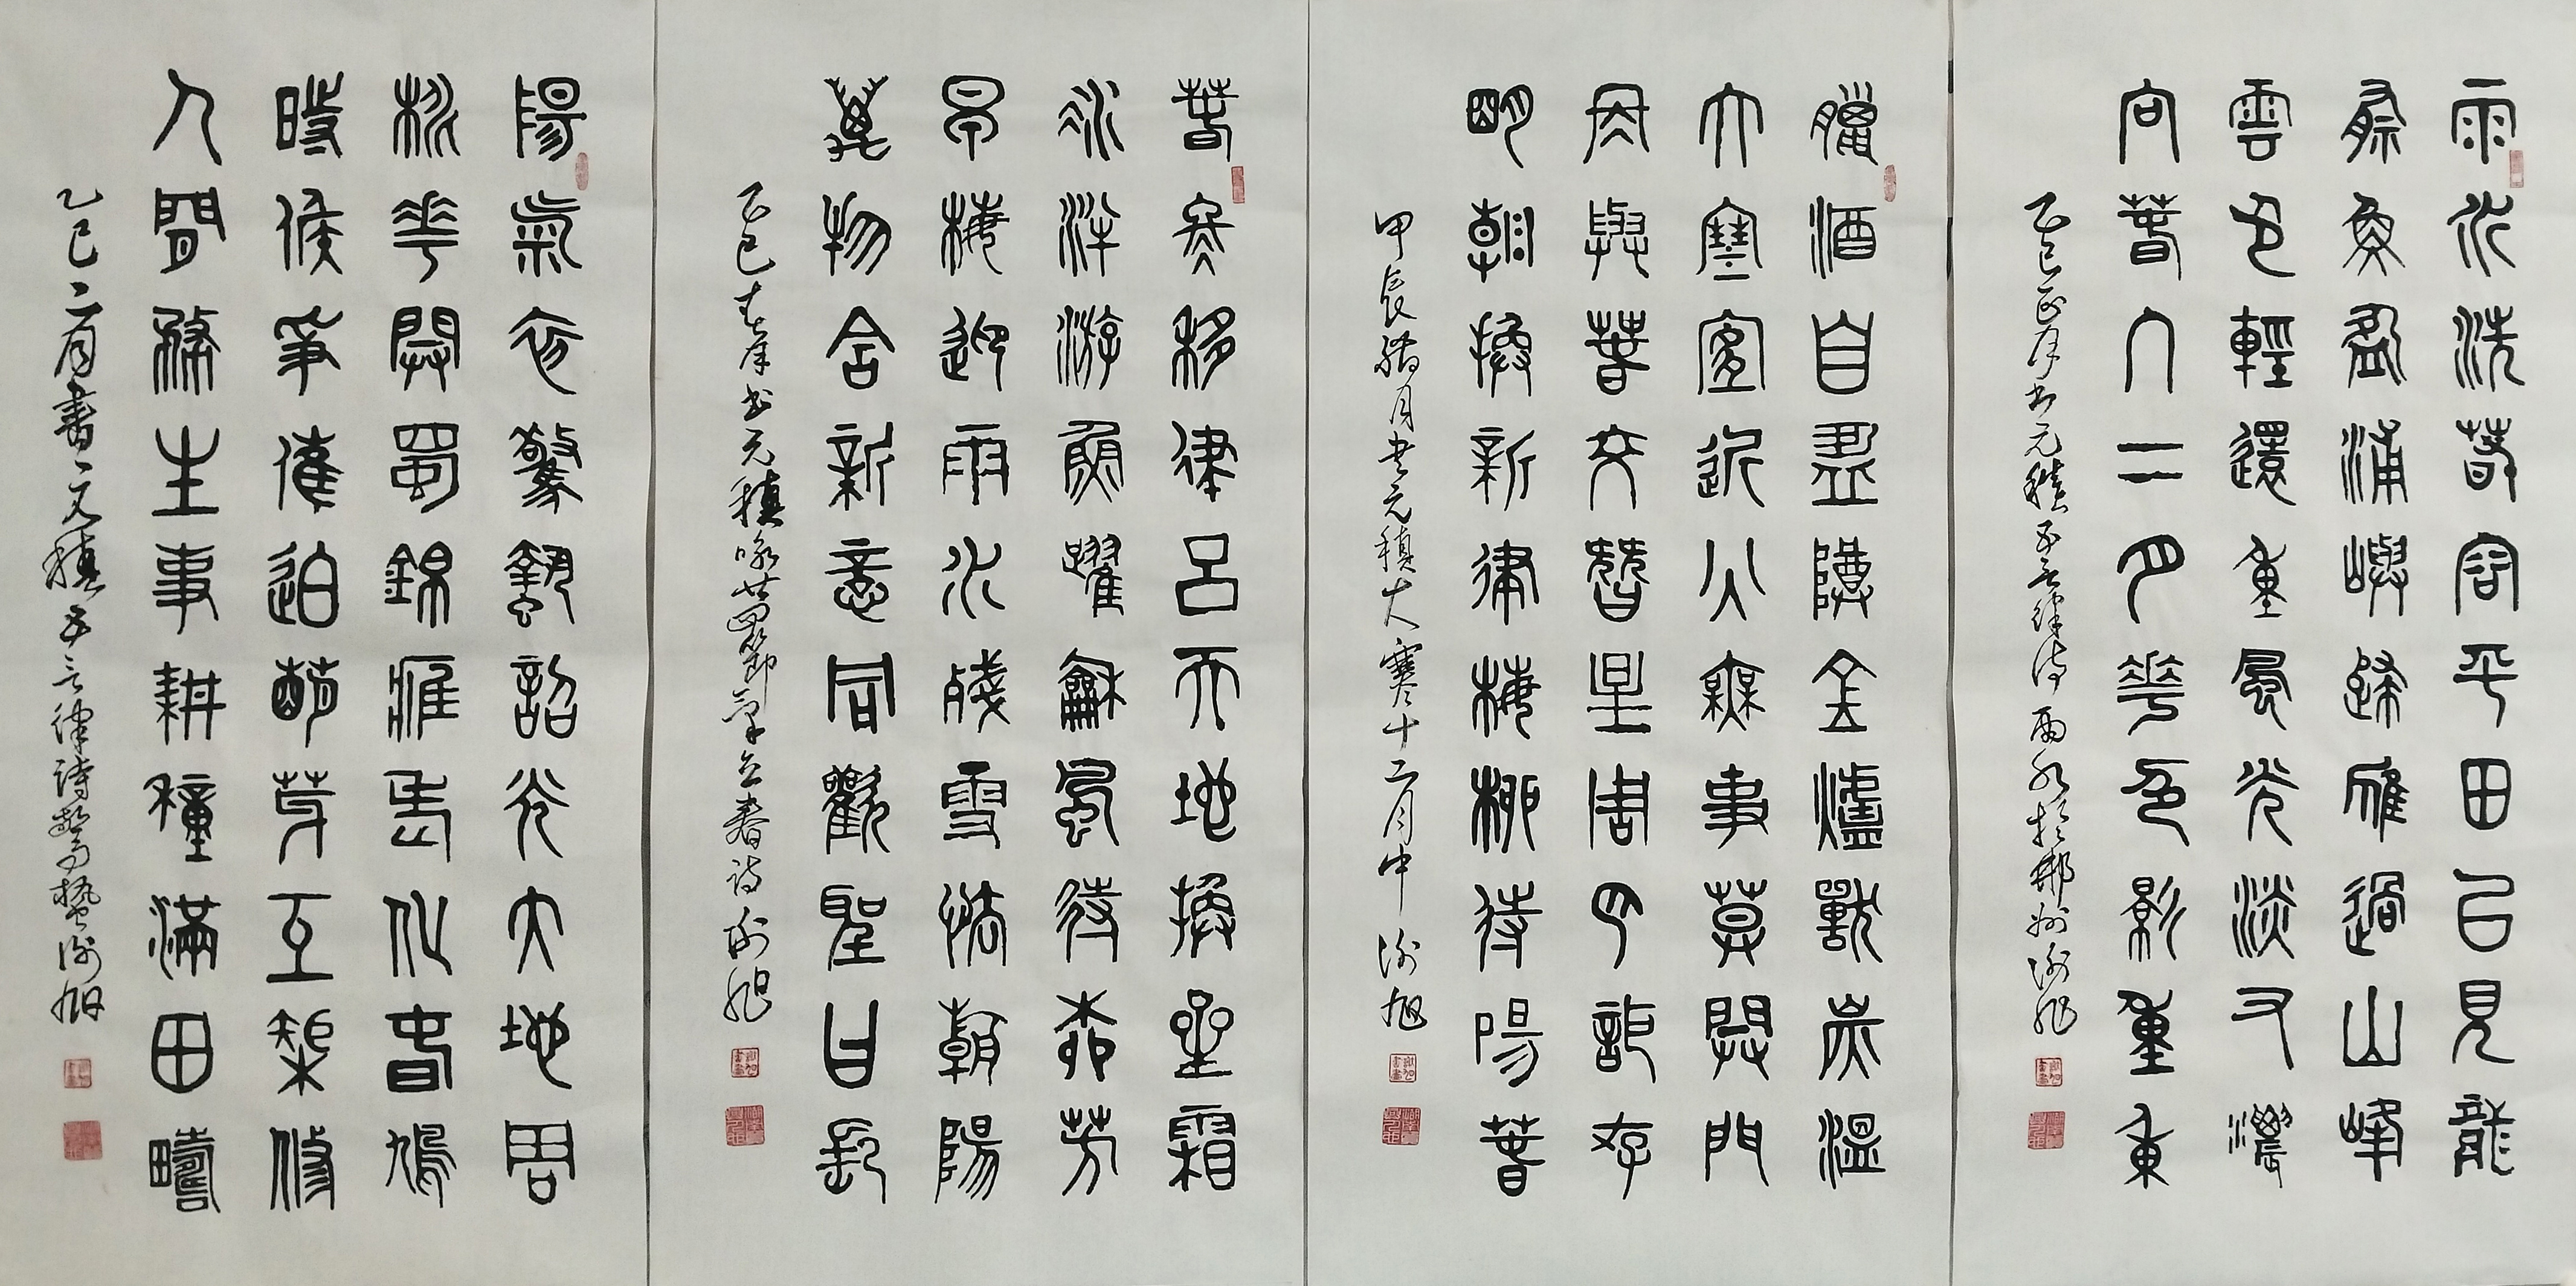 雨水洗春容平田已見龍
祭魚盈浦嶼歸雁過山峰
雲色輕還重風光淡又濃
向春入二月花色影重重
乙巳正月書元稹五言律詩雨水於郴州謝旭
臘酒自盈樽金爐獸炭溫
大寒宜近火無事莫開門
冬與春交替星周月詎存
明朝換新律梅柳待陽春
甲辰臘月書元稹大寒十二月中謝旭
春冬移律呂天地換星霜
冰泮游魚躍龢風待柳芳
早梅迎雨水殘雪怯朝陽
萬物含新意同歡聖日長
乙巳春月書元稹詠廿四節氣立春詩謝旭
陽氣初驚蟄韶光大地周
桃花開蜀錦鷹老化春鳩
時候爭催迫萌芽互矩修
人間務生事耕種滿田疇
乙巳二月書元稹五言律詩驚蟄謝旭